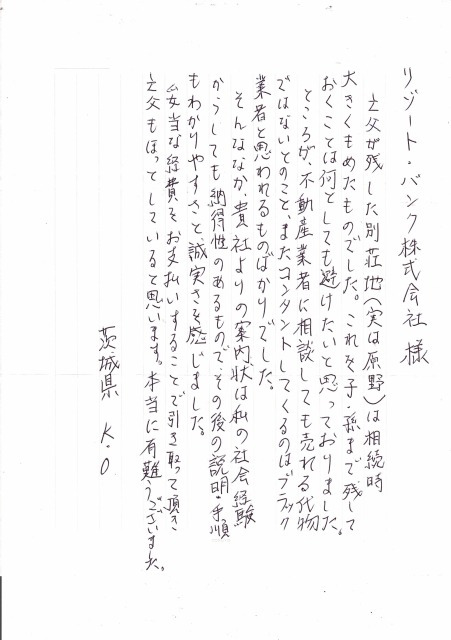 リゾート・バンク株式会社 様
亡父が残した別荘地(実は原野)は相続時
大きくもめたものでした。これを子・孫まで残して
おくことは何としても避けたいと思っておりました。
ところが、不動産業者に相談しても売れる代物
ではないとのこと、またコンタントしてくるのはブラック
業者と思われるものばかりでした。
そんななか、貴社よりの案内状は私の社会経験
からしても納得性のあるもので、その後の説明・手順
もわかりやすさと、誠実さを感じました。
妥当な経費をお支払いすることで引き取って頂き
亡父もほっとしていると思います。本当に有難うございました。
茨城県 K.O